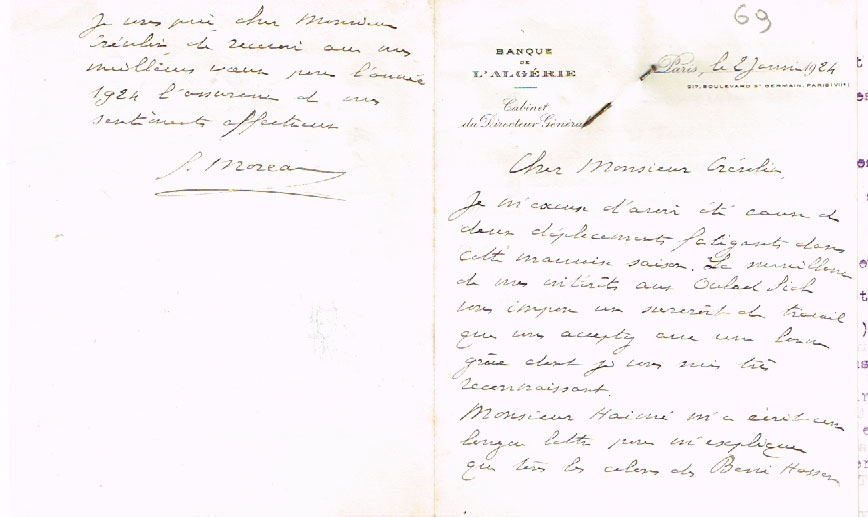 69
BANQUE
DE
L'ALGÉRIE
Cabinet
du Directeur Général
Paris, le 2 Janv 1924
217, BOULEVARD ST GERMAIN, PARIS (VIIe)
Cher Monsieur
Je m'excuse d'avoir été cause de
deux déplacements fatigants dans
cette mauvaise saison. La surveillance
de mes intérêts aux Oulad
vous impose un surcroît de travail
que vous acceptez avec une bonne
grâce dont je vous suis très
reconnaissant.
Monsieur m'a écrit une
longue lettre pour m'expliquer
que tous les colons des Beni Hassen
Je vous prie, cher Monsieur
de recevoir avec mes
meilleurs vœux pour l'année
1924 l'assurance de mes
sentiments affectueux
Moreau